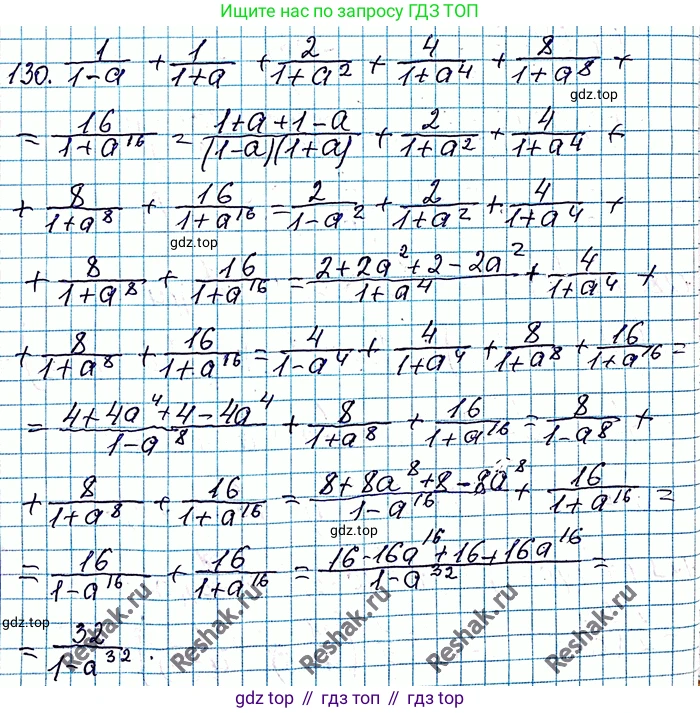 Ищите нас по запросу ГДЗ ТОП
130. 1/(1-a) + 1/(1+a) + 2/(1+a²) + 4/(1+a⁴) + 8/(1+a⁸) +
gdz.top
= 16/(1+a¹⁶) = (1+a+1-a)/((1-a)(1+a)) + 2/(1+a²) + 4/(1+a⁴) +
+ 8/(1+a⁸) + 16/(1+a¹⁶) = 2/(1-a²) + 2/(1+a²) + 4/(1+a⁴) +
gdz.top
+ 8/(1+a⁸) + 16/(1+a¹⁶) = (2+2a²+2-2a²)/(1+a⁴) + 4/(1+a⁴) +
+ 8/(1+a⁸) + 16/(1+a¹⁶) = 4/(1-a⁴) + 4/(1+a⁴) + 8/(1+a⁸) + 16/(1+a¹⁶) =
= (4+4a⁴+4-4a⁴)/(1-a⁸) + 8/(1+a⁸) + 16/(1+a¹⁶) = 8/(1-a⁸) +
+ 8/(1+a⁸) + 16/(1+a¹⁶) = (8+8a⁸+8-8a⁸)/(1-a¹⁶) + 16/(1+a¹⁶) =
gdz.top
= 16/(1-a¹⁶) + 16/(1+a¹⁶) = (16-16a¹⁶+16+16a¹⁶)/(1-a³²) =
gdz.top
= 32/(1-a³²).
Reshak.ru
Reshak.ru
Reshak.ru
Reshak.ru
Reshak.ru
gdz top // гдз топ // gdz.top